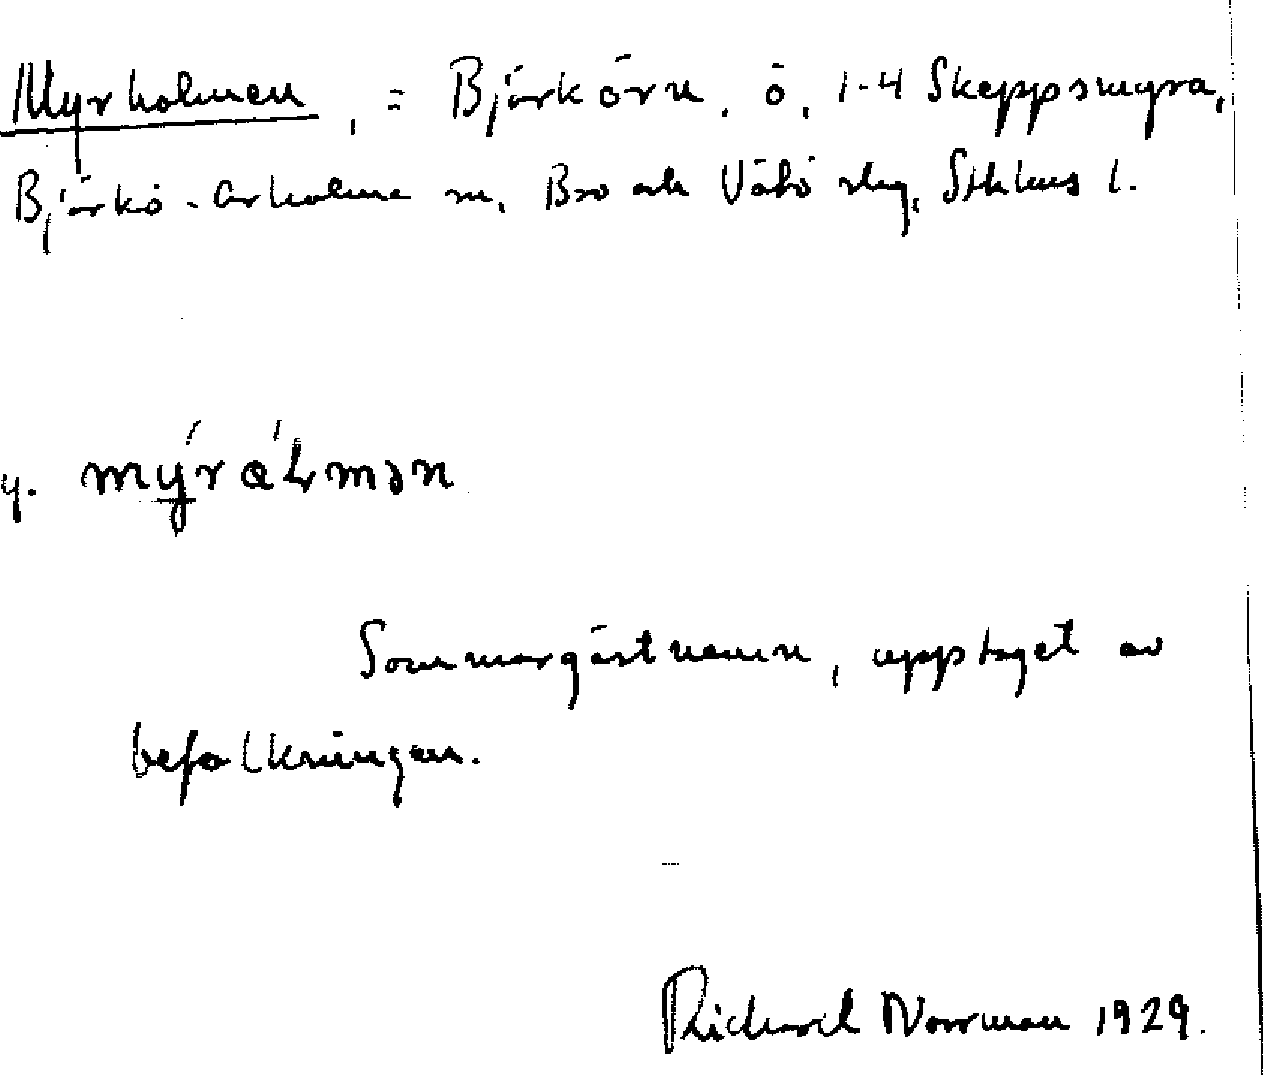 Myrholmen, = Björkörn, ö, 1-4 Skeppsmyra,
Björkö-Arholma sn, Bro och Vätö slg, Sthlms l.
y. mýrɑ́Lmən
Sommargästnamn, upptaget av
befolkningen.
Richard Norrman 1929.